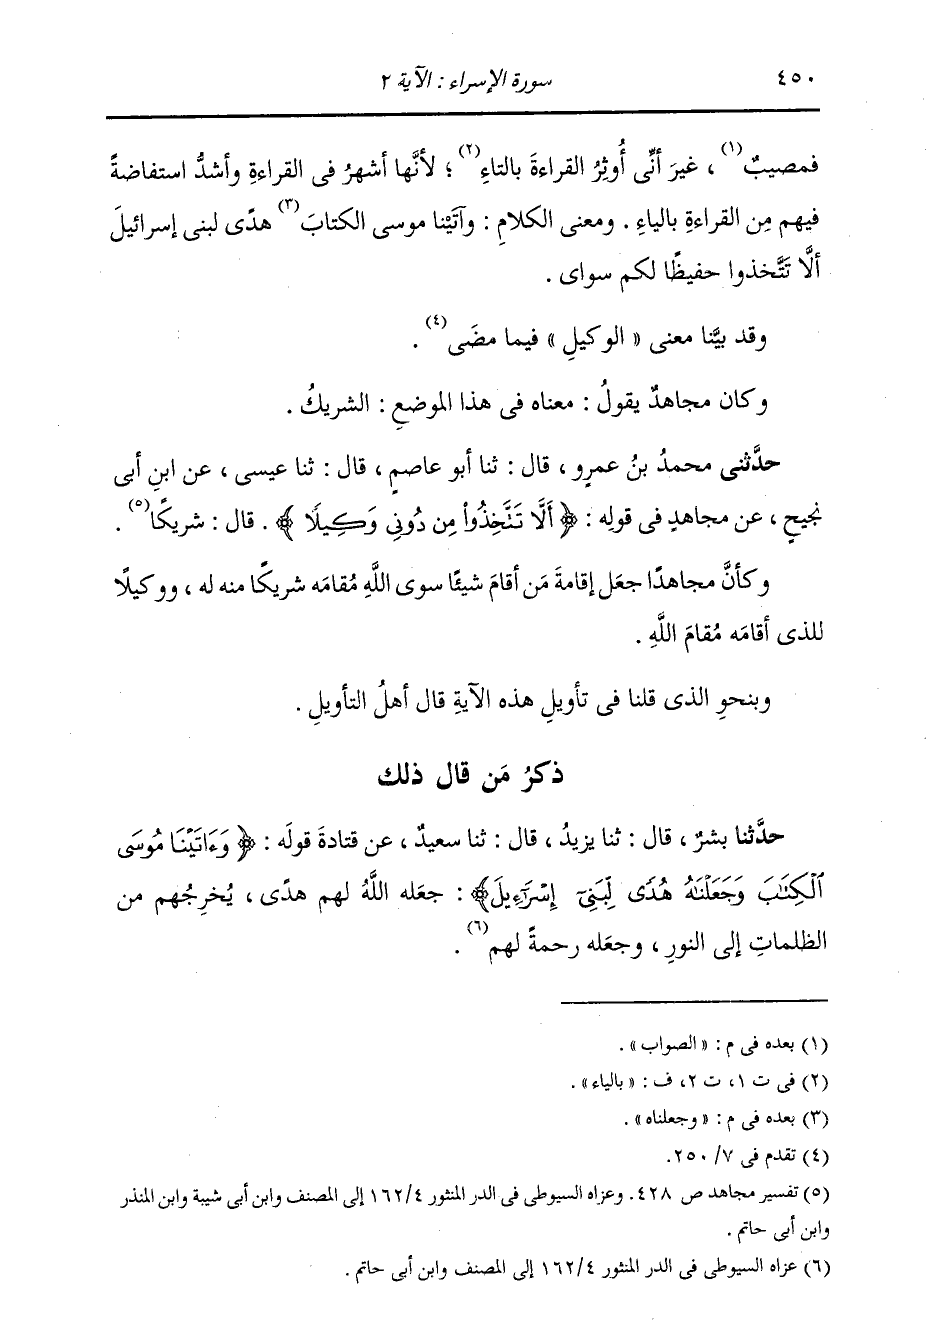 ٤٥٠
سورة الإسراء : الآية ٢
فمصيبٌ(١) ، غيرَ أنِّى أُوثِرُ القراءةَ بالتاءِ(٢) ؛ لأنَّها أشهرُ فى القراءةِ وأشدُّ استفاضةً
فيهم مِن القراءةِ بالياءِ . ومعنى الكلامِ : وآتَيْنا موسى الكتابَ(٣) هدًى لبنى إسرائيلَ
ألَّا تَتَّخذوا حفيظًا لكم سواى .
وقد بيَّنا معنى « الوكيلِ » فيما مضَى(٤) .
وكان مجاهدٌ يقولُ : معناه فى هذا الموضعِ : الشريكُ .
حدَّثنى محمدُ بنُ عمرٍو ، قال : ثنا أبو عاصمٍ ، قال : ثنا عيسى ، عن ابنِ أبى
نجيحٍ ، عن مجاهدٍ فى قولِه : ﴿ أَلَّا تَتَّخِذُواْ مِن دُونِى وَكِيلًا ﴾ . قال : شريكًا(٥) .
وكأنَّ مجاهدًا جعَل إقامةَ مَن أقامَ شيئًا سوى اللَّهِ مُقامَه شريكًا منه له ، ووكيلًا
للذى أقامَه مُقامَ اللَّهِ .
وبنحوِ الذى قلنا فى تأويلِ هذه الآيةِ قال أهلُ التأويلِ .
ذكرُ مَن قال ذلك
حدَّثنا بشرٌ ، قال : ثنا يزيدُ ، قال : ثنا سعيدٌ ، عن قتادةَ قولَه : ﴿ وَءَاتَيْنَا مُوسَى
ٱلْكِتَٰبَ وَجَعَلْنَٰهُ هُدًى لِّبَنِىٓ إِسْرَٰٓءِيلَ﴾ : جعَله اللَّهُ لهم هدًى ، يُخرِجُهم من
الظلماتِ إلى النورِ ، وجعَله رحمةً لهم(٦) .
(١) بعده فى م : « الصواب » .
(٢) فى ت ١، ت ٢، ف : « بالياء » .
(٣) بعده فى م : « وجعلناه » .
(٤) تقدم فى ٧/ ٢٥٠.
(٥) تفسير مجاهد ص ٤٢٨. وعزاه السيوطى فى الدر المنثور ١٦٢/٤ إلى المصنف وابن أبى شيبة وابن المنذر
وابن أبى حاتم .
(٦) عزاه السيوطى فى الدر المنثور ١٦٢/٤ إلى المصنف وابن أبى حاتم .